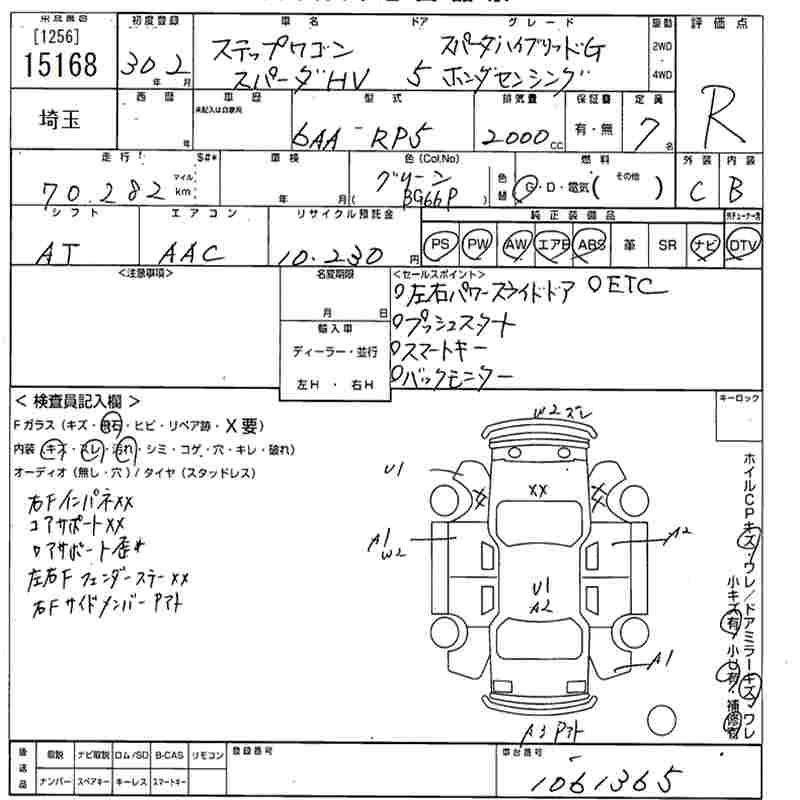 初度登録 車名 ドア グレード 駆動 評価点
[1256] 15168
30年2月
ステップワゴン スパーダHV
5
スパーダハイブリッドG ホンダセンシング
2WD
4WD
R
埼玉
西暦 車歴 型式 排気量 保証書 定員
年
未記入は自家用
6AA-RP5
2000cc
有・無
7名
走行 S#* 車検 色(Col.No) 燃料 外装 内装
70.282 マイル km
年 月
グリーン
( BG66P )
色替
G・D・電気( その他 )
C
B
シフト エアコン リサイクル預託金 純正装備品
AT
AAC
10.230円
PS PW AW エアB ABS 革 SR ナビ DTV
<注意事項>
名変期限
月 日
輸入車
ディーラー・並行
左H・右H
<セールスポイント>
左右パワースライドドア ETC
プッシュスタート
スマートキー
バックモニター
<検査員記入欄>
Fガラス(キズ・飛石・ヒビ・リペア跡・X要)
内装(キズ・スレ・汚れ・シミ・コゲ・穴・キレ・破れ)
オーディオ(無し・穴)/タイヤ(スタッドレス)
右Fインパネxx
コアサポートxx
ロアサポート歪*
左右Fフェンダーステーxx
右Fサイドメンバーアアト
キーロック
W2 ズレ
U1
XX
A1
W2
A2
U1
A2
A1
A3 アアト
ホイルCPキズ・ワレ/ドアミラーキズ・ワレ
小キズ有・小U有・補修有
後送品
取説 ナビ取説 ロム/SD B-CAS リモコン
ナンバー スペアキー キーレス スマートキー
登録番号
車台番号
1061365